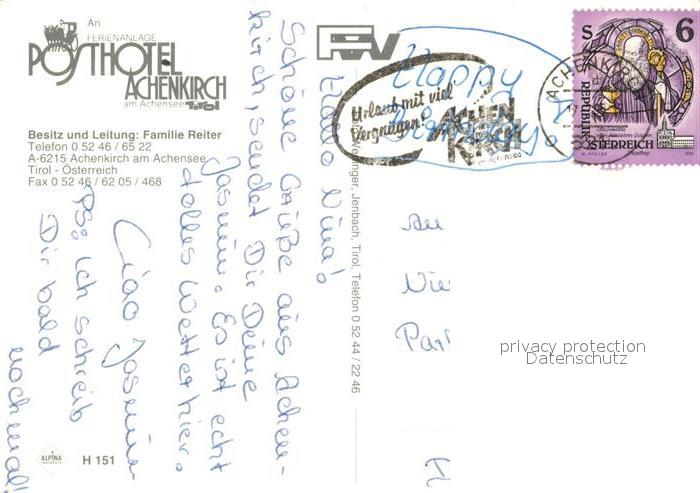 An
FERIENANLAGE
POSTHOTEL
ACHENKIRCH
am Achensee Tirol
Besitz und Leitung: Familie Reiter
Telefon 0 52 46 / 65 22
A-6215 Achenkirch am Achensee
Tirol - Österreich
Fax 0 52 46 / 62 05 / 468
Hallo Nina!
Schöne Grüße aus Achen-
kirch, sendet Dir Deine
Jasmin. Es ist echt
tolles Wetter hier.
Ciao Jasmin
PS: Ich schreib
Dir bald
nochmal!
ALPINA
H 151
Jenbach, Tirol, Telefon 0 52 44 / 22 46
Happy
Urlaub mit viel
Vergnügen: in
ACHEN
KIRCH
am Achensee
ACHENKIRCH
S 6
REPUBLIK
ÖSTERREICH
An
privacy protection
Datenschutz